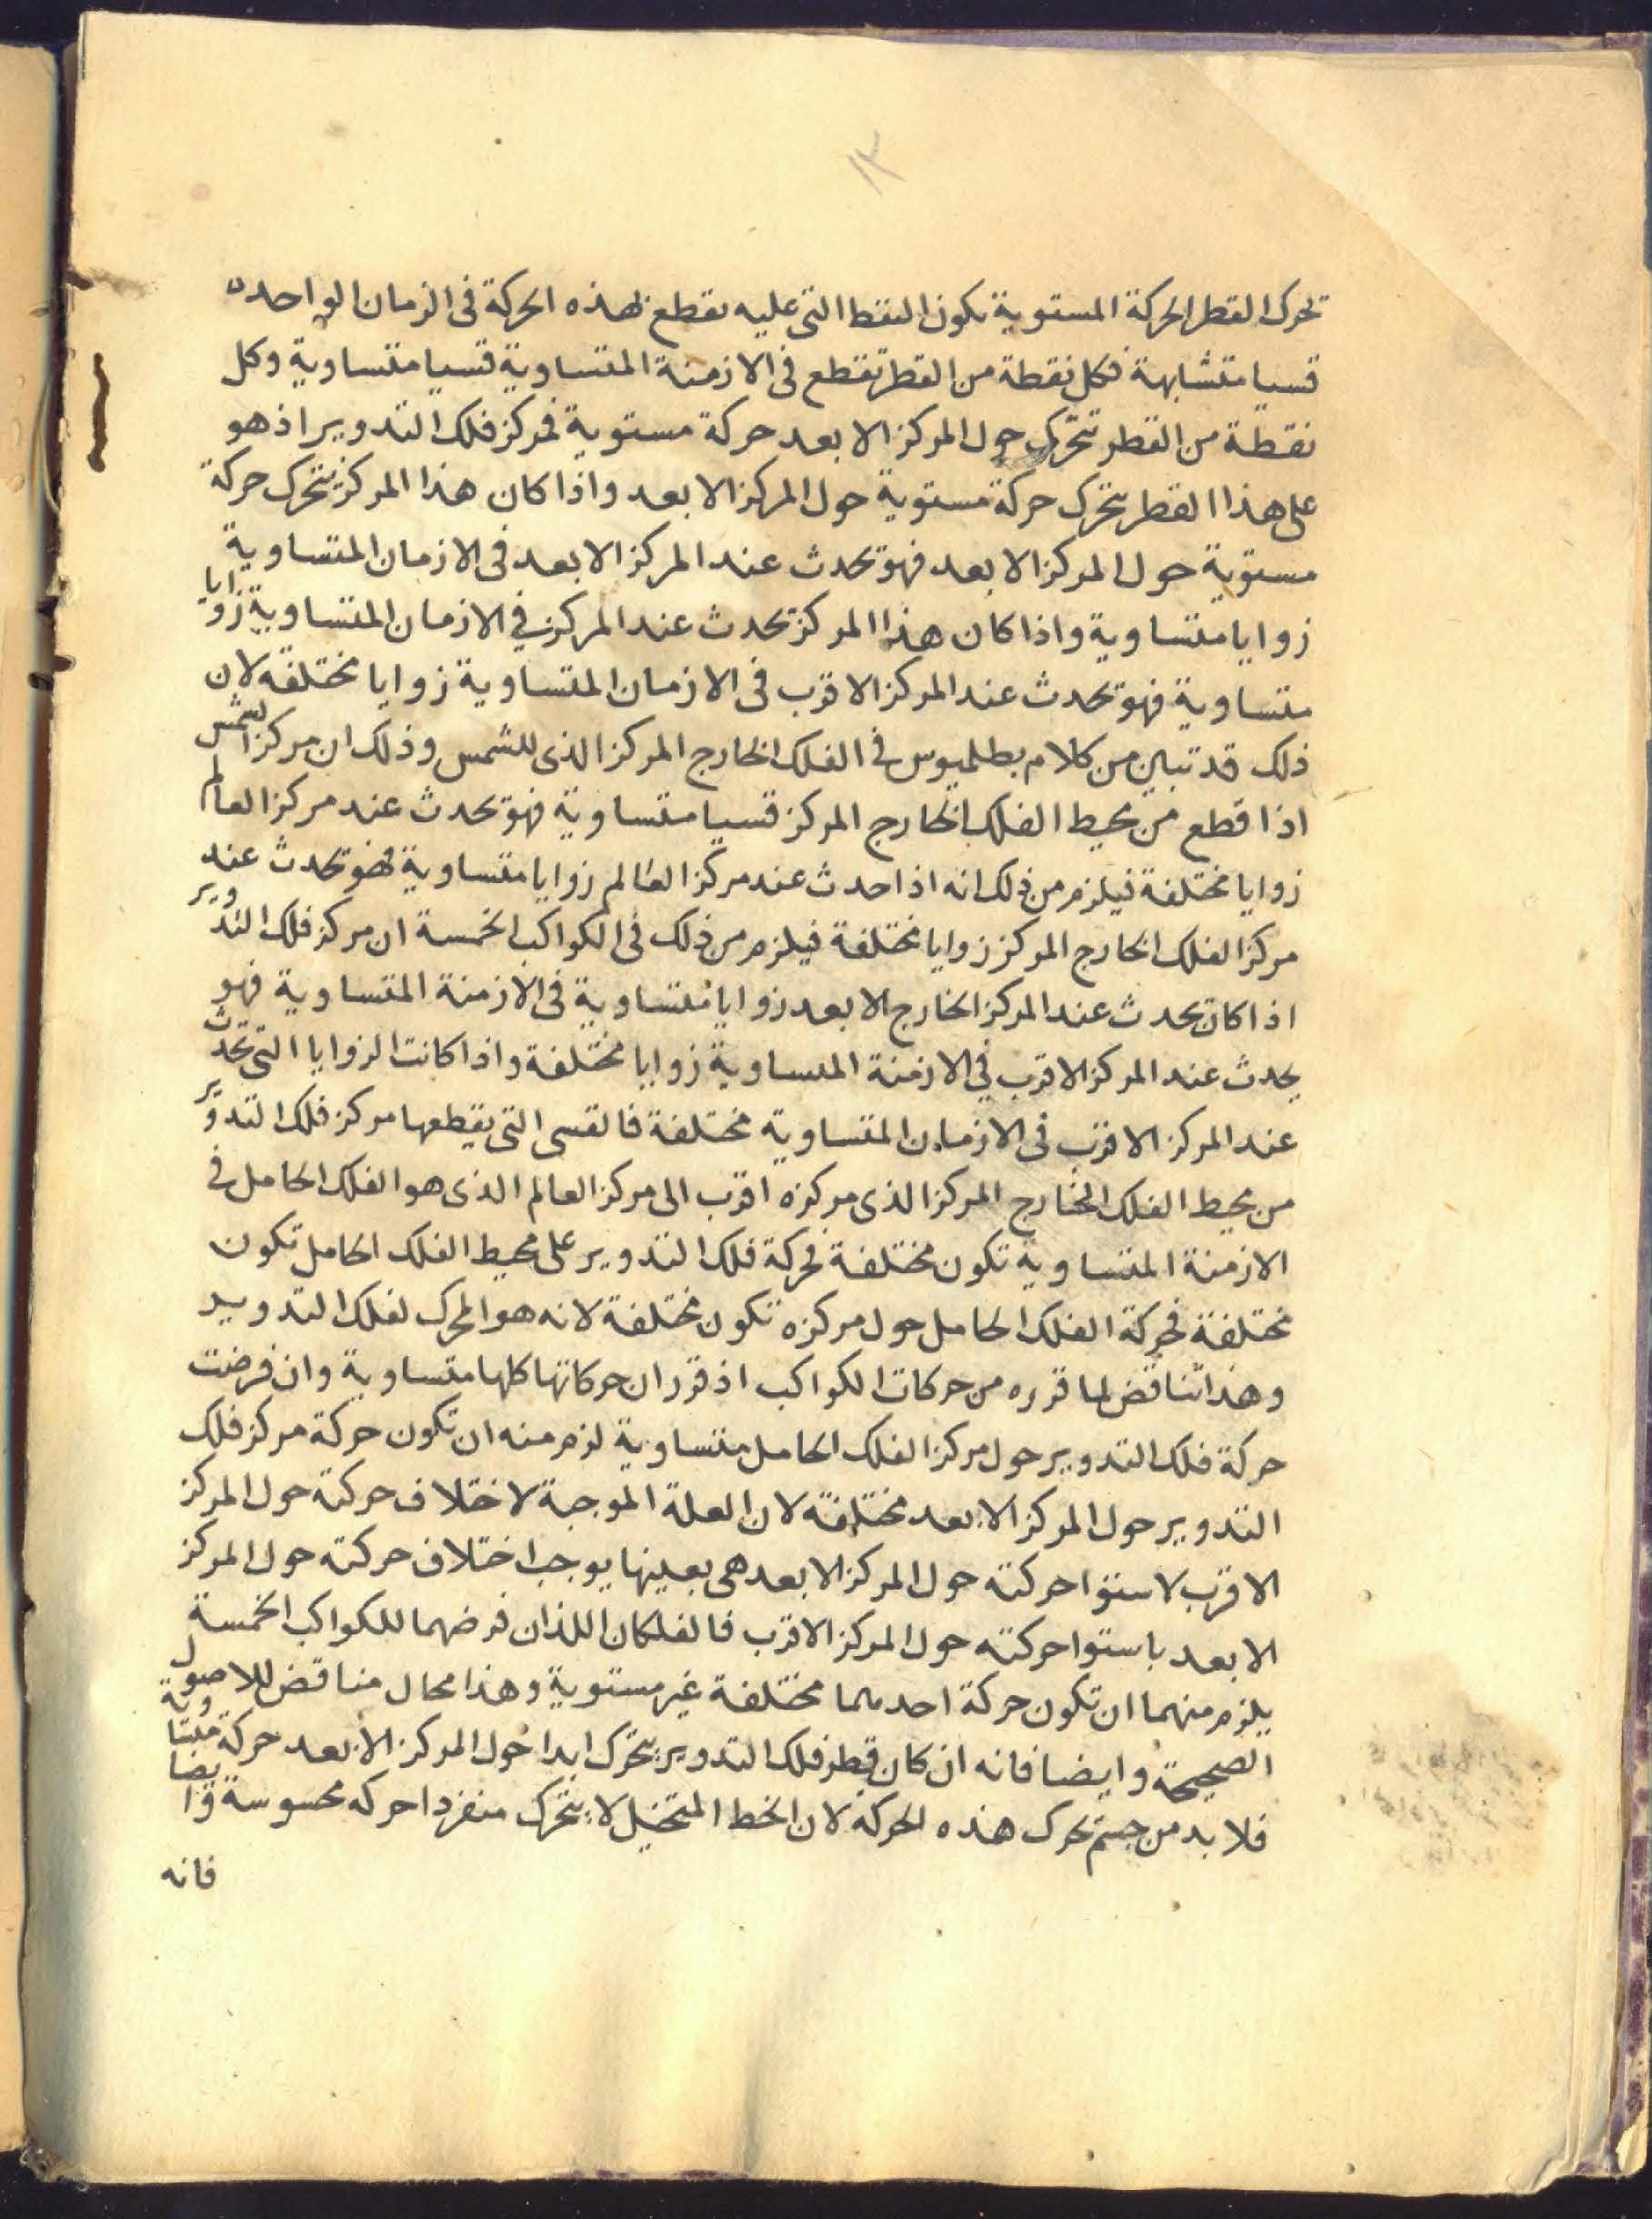 ١٣
تحرك القطر الحركة المستوية تكون النقط التى عليه تقطع بهذه الحركة فى الزمان الواحده
قسيا متشابهة فكل نقطة من القطر تقطع فى الازمنة المتساوية قسيا متساوية وكل
نقطة من القطر تتحرك حول المركز الابعد حركة مستوية فمركز فلك التدوير اذ هو
على هذا القطر يتحرك حركة مستوية حول المركز الابعد واذا كان هذا المركز يتحرك حركة
مستوية حول المركز الابعد فهو يحدث عند المركز الابعد فى الازمان المتساوية
زوايا متساوية واذا كان هذا المركز يحدث عند المركز في الازمان المتساوية زوايا
متساوية فهو يحدث عند المركز الاقرب فى الازمان المتساوية زوايا مختلفة لان
ذلك قد تبين من كلام بطلميوس فى الفلك الخارج المركز الذى للشمس وذلك ان مركز الشمس
اذا قطع من محيط الفلك الخارج المركز قسيا متساوية فهو يحدث عند مركز العالم
زوايا مختلفة فيلزم من ذلك انه اذا احدث عند مركز العالم زوايا متساوية فهو يحدث عند
مركز الفلك الخارج المركز زوايا مختلفة فيلزم من ذلك فى الكواكب الخمسة ان مركز فلك التدوير
اذا كان يحدث عند المركز الخارج الابعد زوايا متساوية فى الازمنة المتساوية فهو
يحدث عند المركز الاقرب في الازمنة المتساوية زوايا مختلفة واذا كانت الزوايا التى تحدث
عند المركز الاقرب فى الازمان المتساوية مختلفة فالقسى التى يقطعها مركز فلك التدوير
من محيط الفلك الخارج المركز الذى مركزه اقرب الى مركز العالم الذى هو الفلك الحامل فى
الازمنة المتساوية تكون مختلفة فحركة فلك التدوير على محيط الفلك الحامل تكون
مختلفة فحركة الفلك الحامل حول مركزه تكون مختلفة لانه هو المحرك لفلك التدوير
وهذا تناقض لما قرره من حركات الكواكب اذ قرر ان حركاتها كلها متساوية وان فرضت
حركة فلك التدوير حول مركز الفلك الحامل متساوية لزم منه ان تكون حركة مركز فلك
التدوير حول المركز الابعد مختلفة لان العلة الموجبة لاختلاف حركته حول المركز
الاقرب لاستوا حركته حول المركز الابعد هى بعينها يوجب اختلاف حركته حول المركز
الابعد باستوا حركته حول المركز الاقرب فالفلكان اللذان فرضهما للكواكب الخمسة
يلزم منهما ان تكون حركة احدهما مختلفة غير مستوية وهذا محال مناقض للاصول
الصحيحة وايضا فانه ان كان قطر فلك التدوير يتحرك ابدا حول المركز الابعد حركة متساوية
فلا بد من جسم تحرك هذه الحركة لان الخط المتخيل لا يتحرك منفردا حركه محسوسة وايضا
فانه